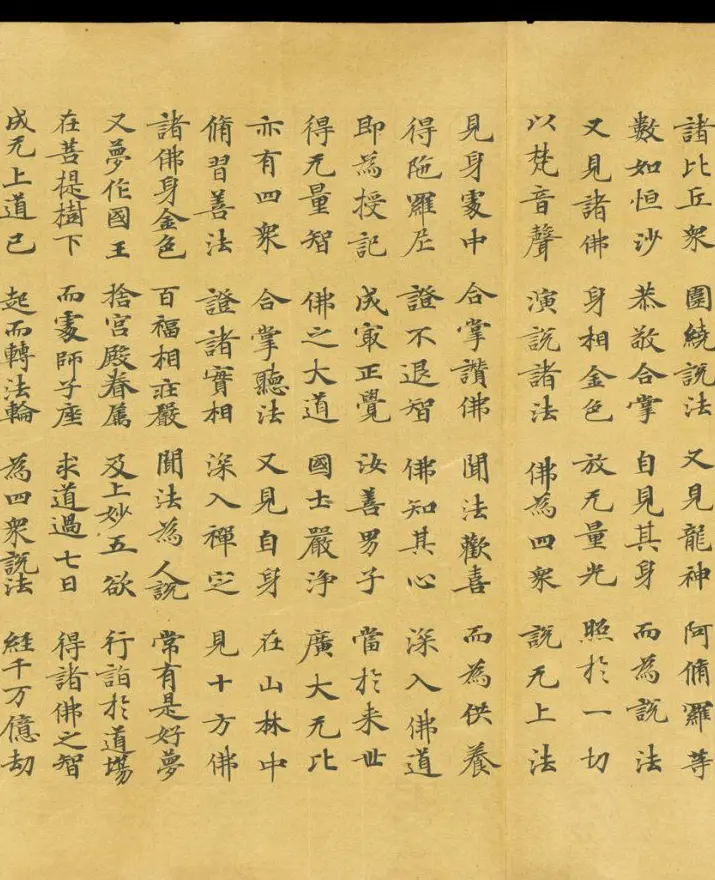 諸比丘衆 圍繞說法 又見龍神 阿脩羅等
數如恒沙 恭敬合掌 自見其身 而為說法
又見諸佛 身相金色 放无量光 照於一切
以梵音聲 演說諸法 佛為四衆 說无上法
見身處中 合掌讚佛 聞法歡喜 而為供養
得陁羅尼 證不退智 佛知其心 深入佛道
即為授記 成冣正覺 汝善男子 當於来世
得无量智 佛之大道 國土嚴淨 廣大无比
亦有四衆 合掌聽法 又見自身 在山林中
脩習善法 證諸實相 深入禪定 見十方佛
諸佛身金色 百福相莊嚴 聞法為人說 常有是好夢
又夢作國王 捨宮殿眷属 及上妙五欲 行詣於道場
在菩提樹下 而處師子座 求道過七日 得諸佛之智
成无上道已 起而轉法輪 為四衆說法 經千万億劫